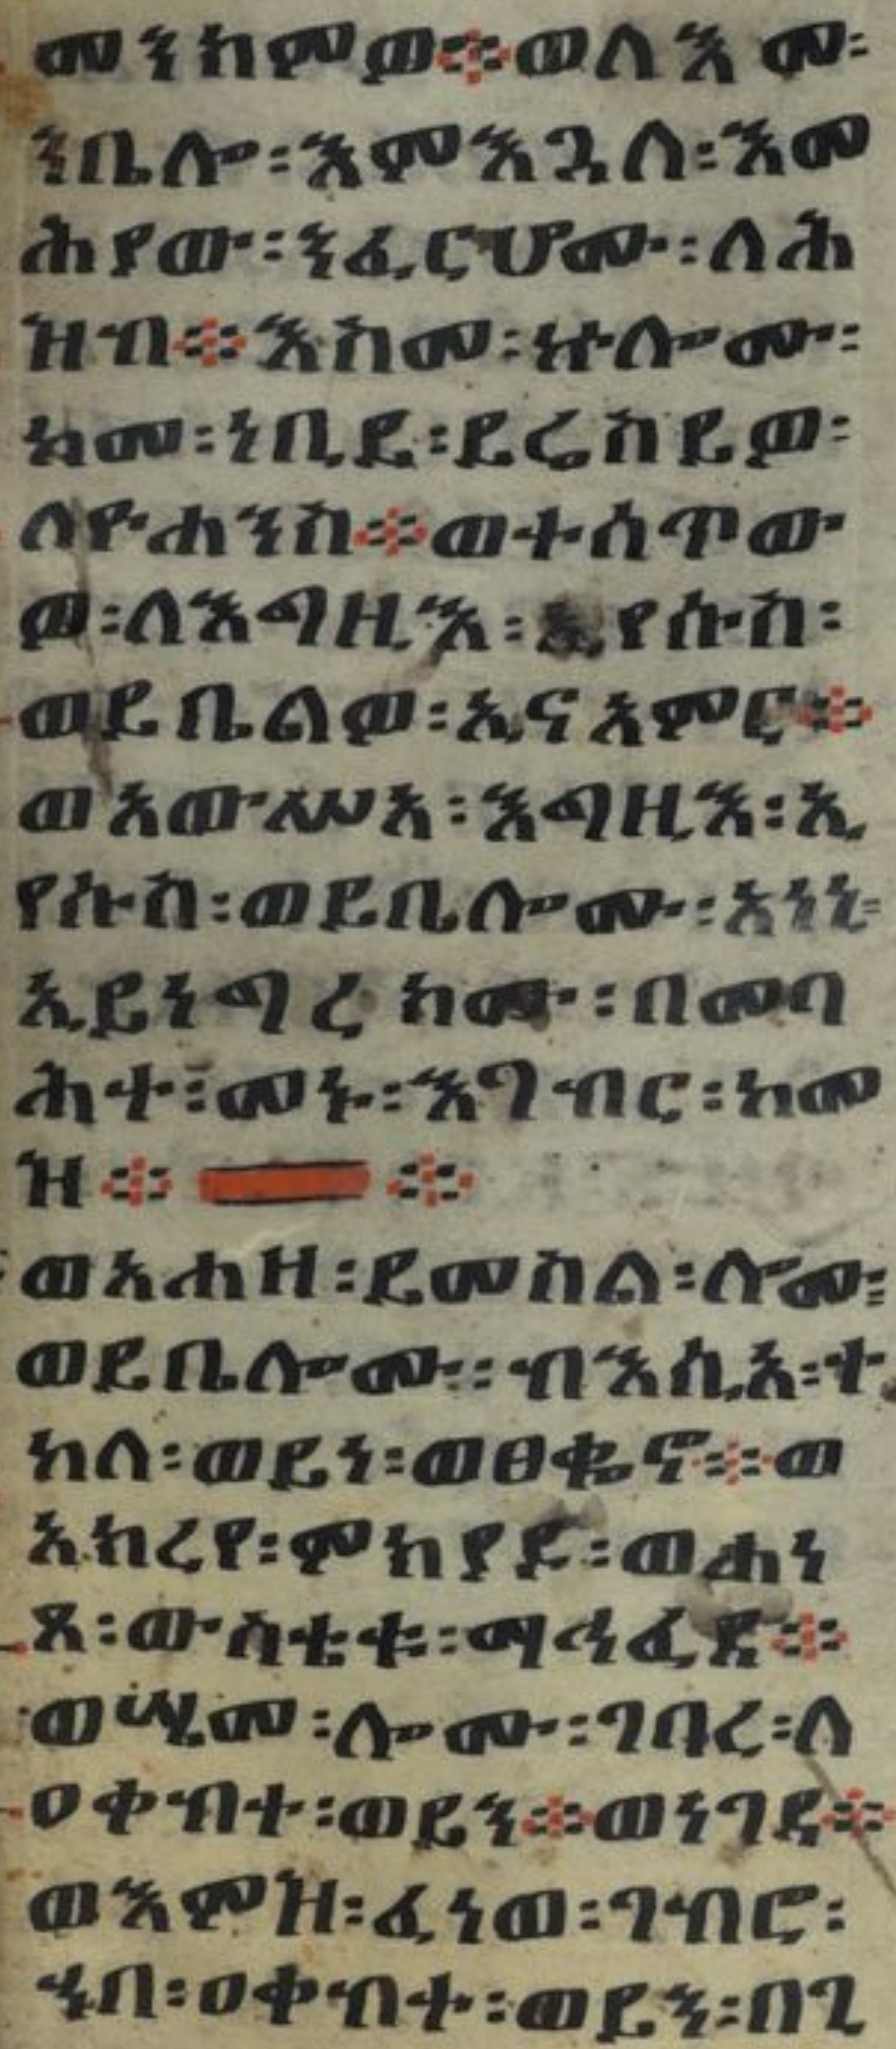 መንከምዎ፨ወለእመ፡
ንቤሎ፡እምእጓለ፡እመ
ሕያው፡ንፈርሆሙ፡ለሕ
ዝብ፨እስመ፡ኵሎሙ፡
ከመ፡ነቢይ፡ይሬስይዎ፡
ለዮሐንስ፨ወተሰጥው
ዎ፡ለእግዚእ፡ኢየሱስ፡
ወይቤልዎ፡ኢናአምር፨
ወአውሥአ፡እግዚእ፡ኢ
የሱስ፡ወይቤሎሙ፡አነኒ፡
ኢይነግረክሙ፡በመባ
ሕተ፡መኑ፡እገብር፡ከመ
ዝ፨ ፨
ወአሐዘ፡ይመስል፡ሎሙ፡
ወይቤሎሙ፡ብእሲ፡አተ
ከለ፡ወይነ፡ወፀቈኖ፨ወ
አክረየ፡ምክያደ፡ወሐነ
ጸ፡ውስቴቱ፡ማኅፈደ፨
ወሤመ፡ሎሙ፡ገባረ፡ለ
ዐቀብተ፡ወይን፨ወነገደ፨
ወእምዝ፡ፈነወ፡ገብሮ፡
ኀበ፡ዐቀብተ፡ወይን፡በጊ